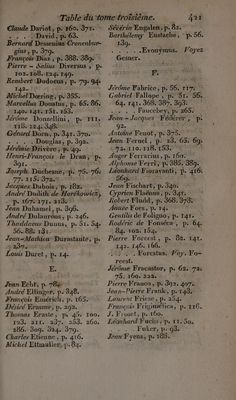 Table du tome troisième. 421
Claude Dariot, p. 160. 371.
. . . . David, p. 63.
Bernard Dessenius Cronenburgius, p. 379.
François Diaz, p. 388. 389.
Pierre-Salius Diversus, p.
102. 108. 124. 149.
Rembert Dodoens, p. 79. 94.
142.
Michel Doering, p. 355.
Marcellus Donatus, p. 65. 86.
140. 141. 151. 163.
Jérôme Donzellini, p. 111.
118. 244. 348.
Gérard Dorn, p. 341. 370.
. . . . Douglas, p. 392.
Jérémie Drivère, p. 49.
Henri-François le Dran, p.
391.
Joseph Duchesne, p. 75. 76.
77. 215. 372.
Jacques Dubois, p. 182.
André Dudith de Horekowicz,
p. 167. 171. 213.
Jean Duhamel, p. 396.
André Dulaurens, p. 246.
Thaddaeus Dunus, p. 51. 54.
56. 88. 131.
Jean-Mathieu Durastante, p.
237.
Louis Duret, p. 14.
E.
Jean Echt, p. 784
André Ellinger, p. 348.
François Emérich, p. 165.
Désiré Erasme, p. 292.
Thomas Eraste, p. 46. 100.
123. 211. 237. 253. 260.
286. 309. 324. 379.
Charles Etienne, p. 416.
Michel Ettmuller, p. 84.
Sévérin Eugalen, p. 82.
Barthélemy Eustache, p. 56.
139.
. . . . Evonymus. Voyez
Gesner.
F.
Jérôme Fabrice, p. 56. 117.
Gabriel Fallope, p. 51. 56.
64. 141. 368. 387. 393.
. . . . Fauccbey, p. 265.
Jean-Jacques Fédérer, p.
92.
Antoine Fenot, p. 375.
Jean Fernel, p. 23. 65. 69.
72. 110. 128. 153.
Auger Ferrarius, p. 160.
Alphonse Ferri, p. 385. 389.
Léonhard Fioravanti, p. 416.
369.
Jean Fischart, p. 340.
Cyprien Flöshem, p. 341.
Robert Fludd, p. 368. 378.
Anuce Foes, p. 14.
Gentilis de Foligno, p. 141.
Rodéric de Fonséca, p. 64.
84. 102. 164.
Pierre Foreest, p. 82. 141.
142. 146. 166.
. . . . Forestus. Voy. Foreest.
Jérôme Fracastor, p. 62. 72.
75. 160. 222.
Pierre Franco, p. 392. 407.
Jean-Pierre Frank, p. 143.
Laurent Friese, p. 234.
François Frigimélica, p. 116.
J. Froucl, p. 160.
Léonhard Fuchs, p. 11. 50.
. . . . Fuker, p. 93.
Jean Fyens, p. 188.